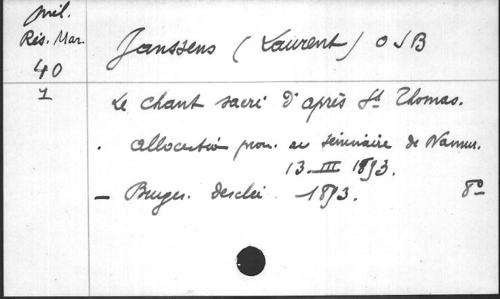 Mél.
Rés. Mar.
40
1
Janssens (Laurent) OSB
Le chant sacré d'après St Thomas.
. Allocution pron. au séminaire de Namur.
13. III 1893.
— Bruges. Desclée. 1893. 8º